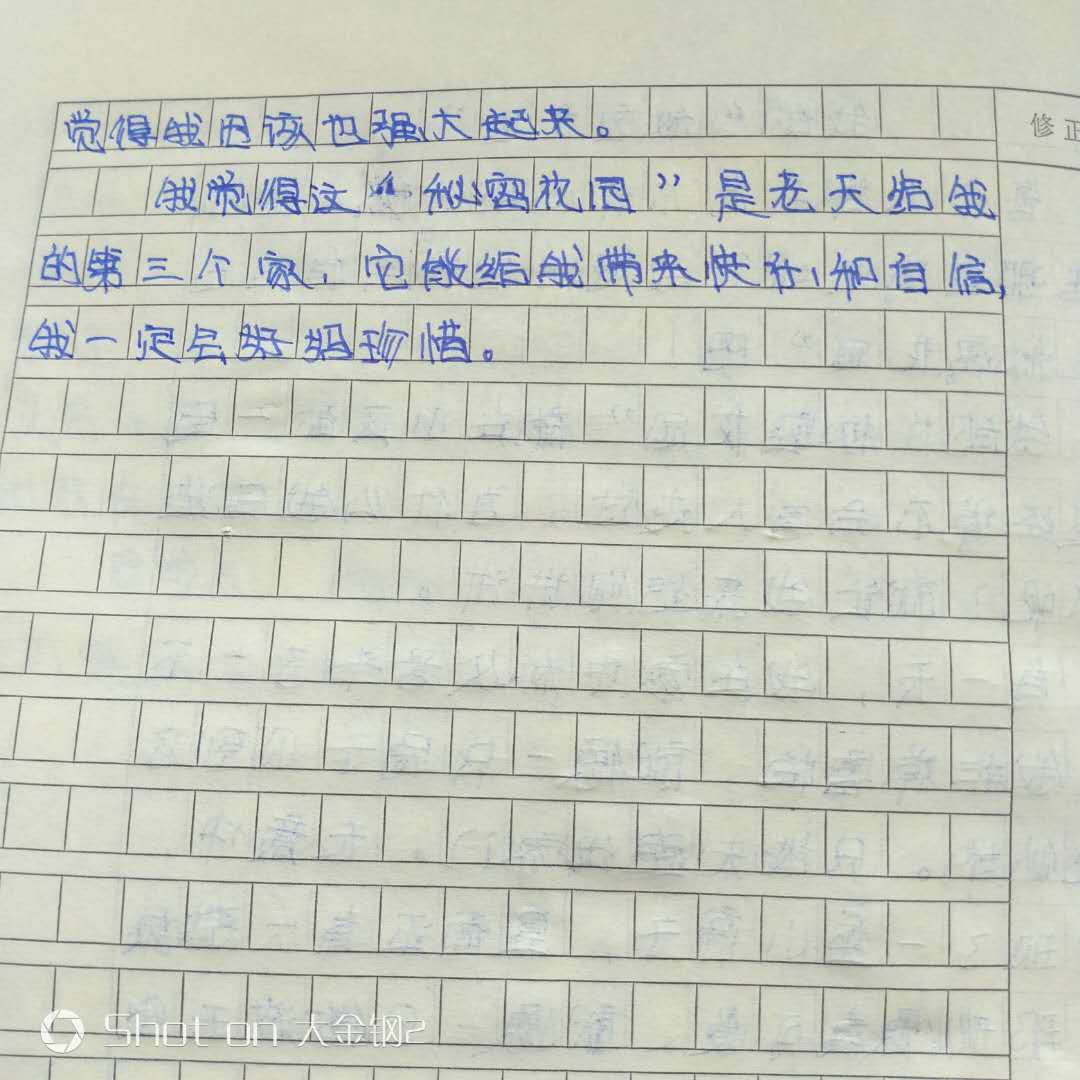 觉得我因该也强大起来。
修正
我觉得这“秘密花园”是老天给我
的第三个家，它能给我带来快乐，和自信，
我一定会好好珍惜。
Shot on 大金钢2